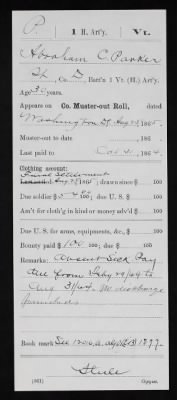 P. | 1 H. Art'y. | Vt.
Abraham C. Parker
, Co. D, Batt'n 1 Vt. (H.) Art'y.
Age 3 years
Appears on Co. Muster-out Roll, dated
Washington DC Aug 25, 1865.
Muster-out to date , 186 .
Last paid to Oct 31, 1864.
Clothing account:
Final Settlement
Last settled Aug 31, 186 ; drawn since $ 100
Due soldier $ 100; due U. S. $ 100
Am't for cloth'g in kind or money adv'd $ 100
Due U. S. for arms, equipments, &c., $ 100
Bounty paid $ 100 100; due $ 100
Remarks: Absent Sick Pay
due from Feby 29/64 to
Aug 31/64. No discharge
furnished
Book mark: See
(861) Copyist.